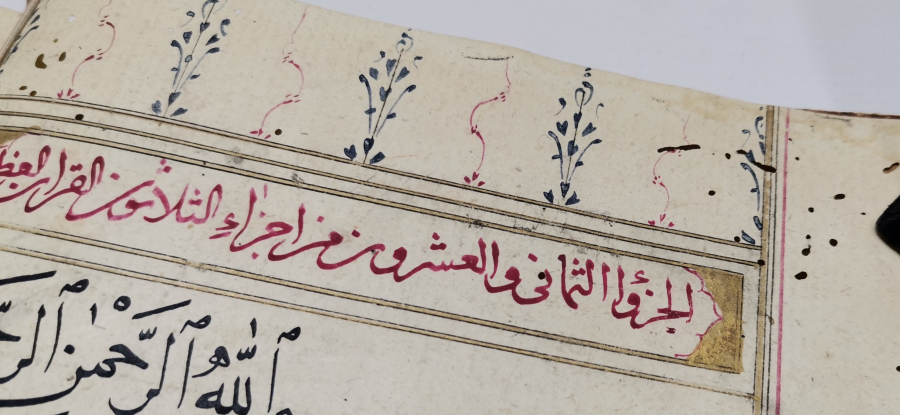 الجزؤ الثانى والعشرون من اجزاءِ الثلاثون القران العظ
اللّٰه الرحمٰن الرح